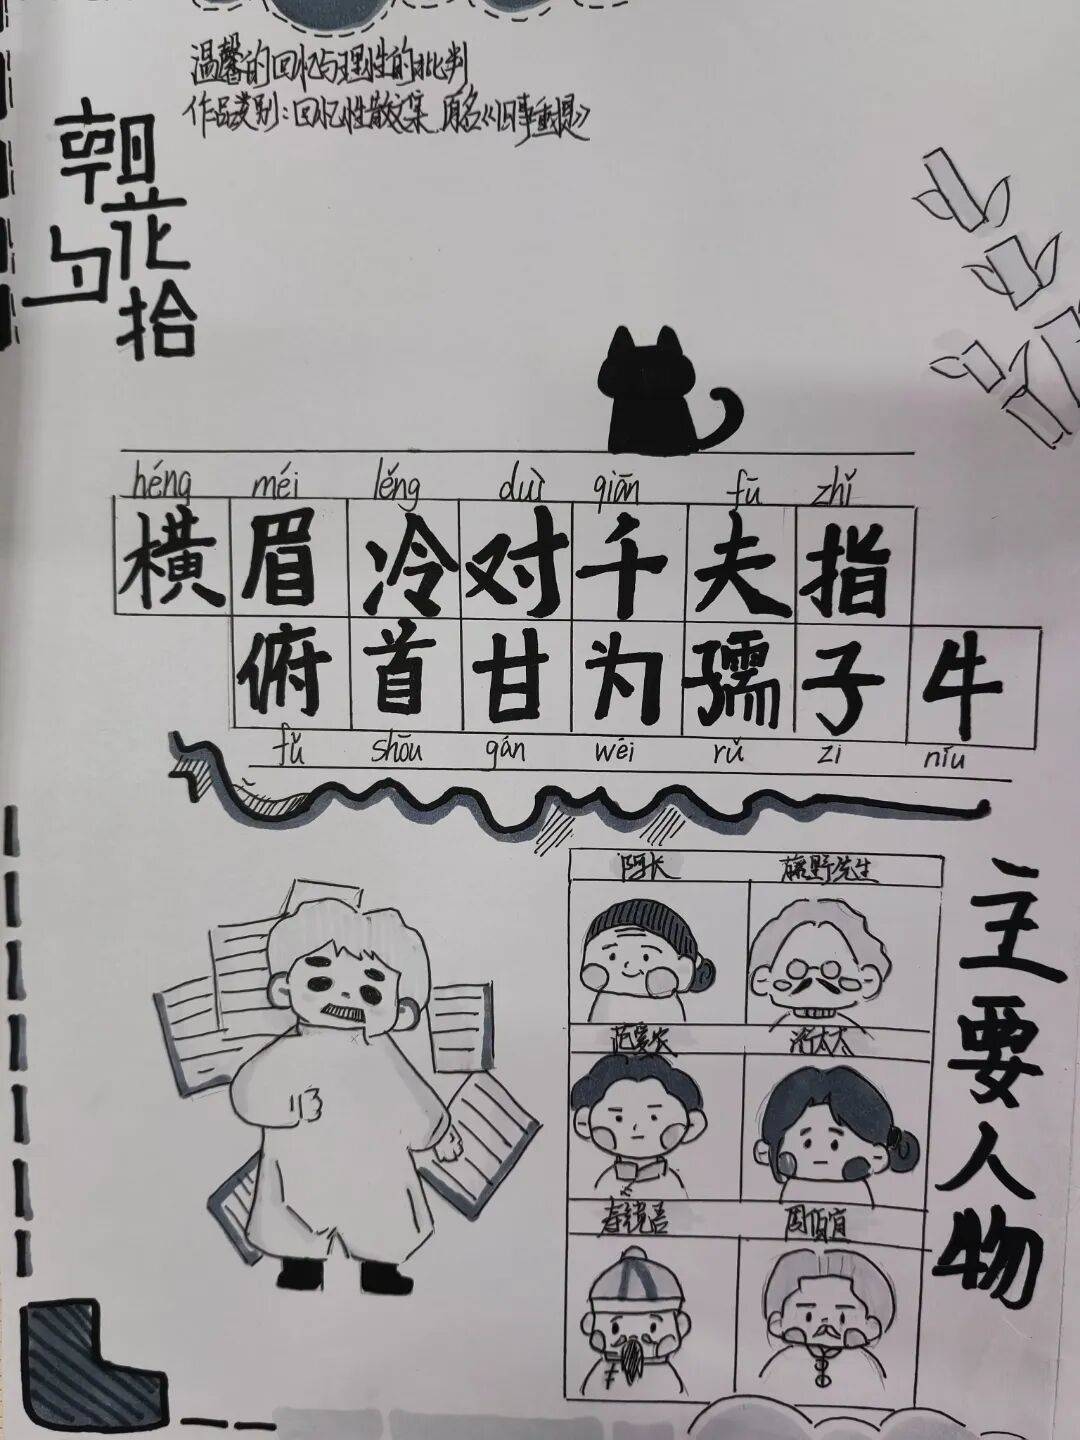 温馨的回忆与理性的批判
作品类别:回忆性散文集 原名《旧事重提》
朝花夕拾
héng méi lěng duì qiān fū zhǐ
横眉冷对千夫指
俯首甘为孺子牛
fǔ shōu gán wēi rǔ zi níu
主要人物
阿长 藤野先生
范爱农 衍太太
寿镜吾 周伯宜